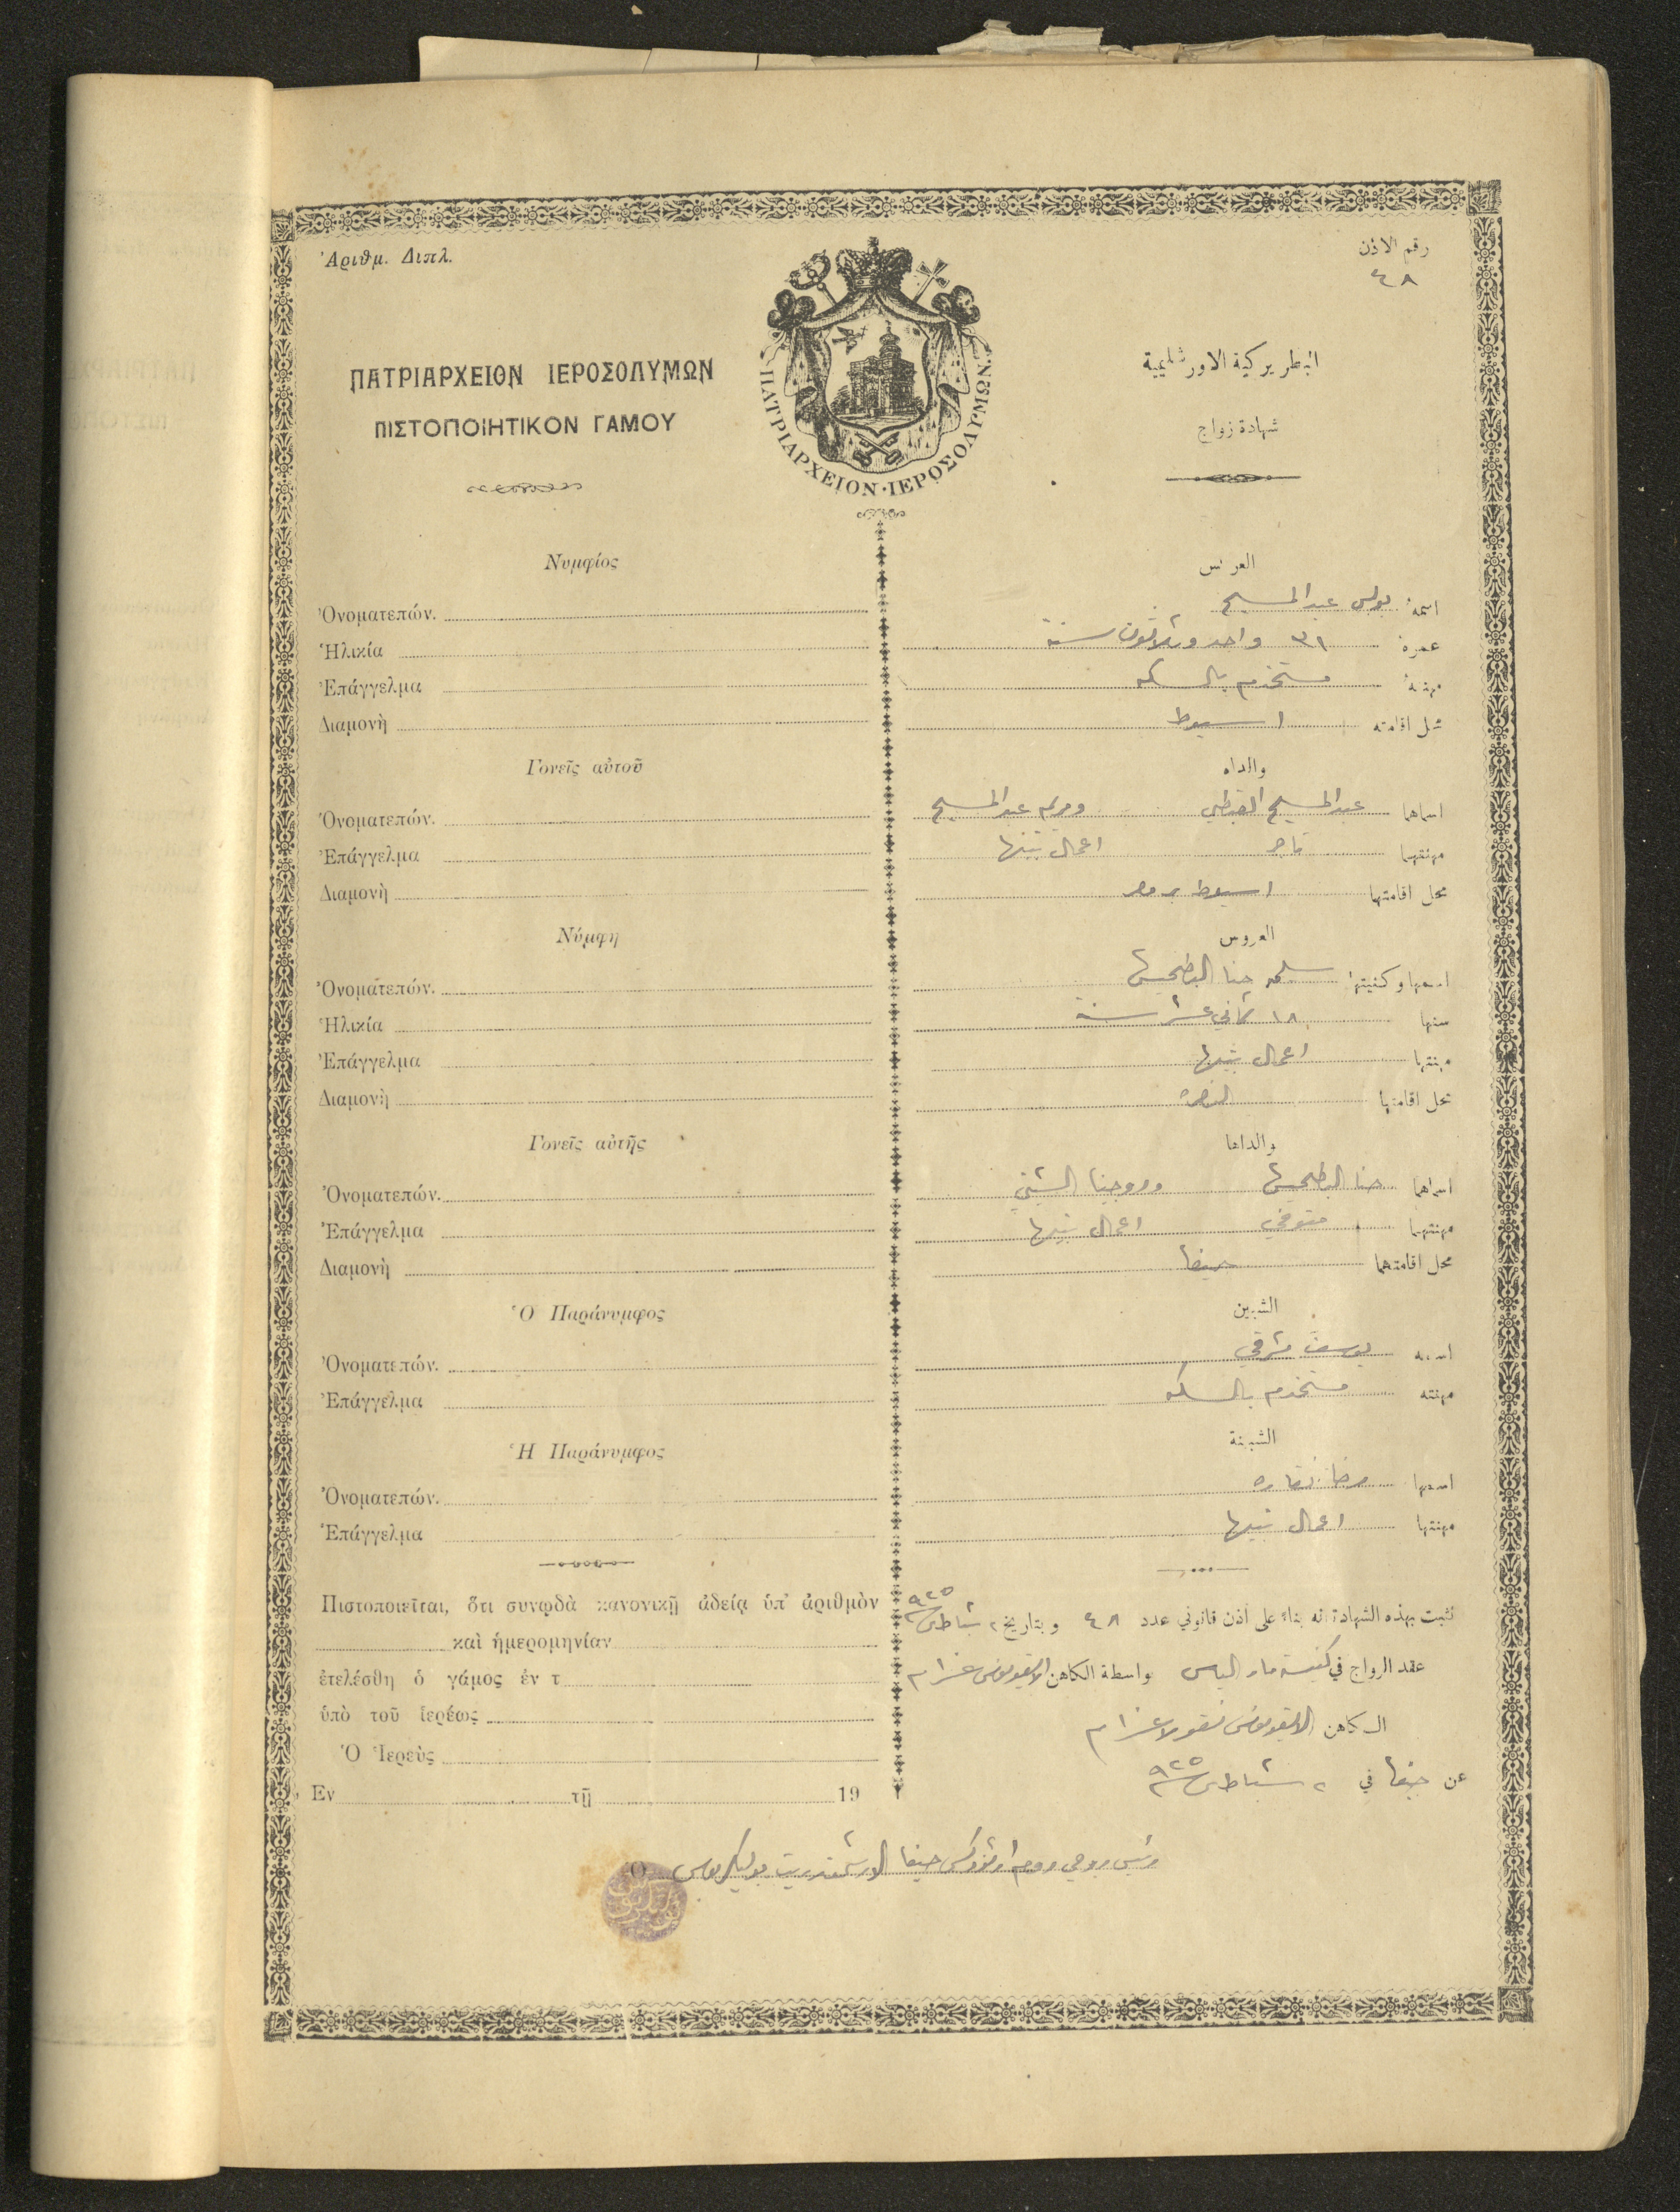 Ἀριθμ. Διπλ.
رقم الاذن
٤٨
ΠΑΤΡΙΑΡΧΕΙΟΝ ΙΕΡΟΣΟΛΥΜΩΝ
ΠΙΣΤΟΠΟΙΗΤΙΚΟΝ ΓΑΜΟΥ
ΠΑΤΡΙΑΡΧΕΙΟΝ·ΙΕΡΟΣΟΛΥΜΩΝ.
البطريركية الاورشليمية
شهادة زواج
Νυμφίος
Ὀνοματεπών.
Ἡλικία
Ἐπάγγελμα
Διαμονὴ
Γονεῖς αὐτοῦ
Ὀνοματεπών.
Ἐπάγγελμα
Διαμονὴ
Νύμφη
Ὀνοματεπών.
Ἡλικία
Ἐπάγγελμα
Διαμονὴ
Γονεῖς αὐτῆς
Ὀνοματεπών.
Ἐπάγγελμα
Διαμονὴ
Ὁ Παράνυμφος
Ὀνοματεπών.
Ἐπάγγελμα
Ἡ Παράνυμφος
Ὀνοματεπών.
Ἐπάγγελμα
Πιστοποιεῖται, ὅτι συνῳδὰ κανονικῇ ἀδείᾳ ὑπ' ἀριθμὸν
καὶ ἡμερομηνίαν
ἐτελέσθη ὁ γάμος ἐν τ
ὑπὸ τοῦ ἱερέως
Ὁ Ἱερεὺς
Ἐν τῇ 19
العريس
اسمهُ بولس عبد المسيح
عمرهُ ٣١ واحد وثلاثون سنة
مهنتهُ مستخدم بالسكه
محل اقامته اسيوط
والداه
اسماهما عبد المسيح القبطي ومريم عبد المسيح
مهنتهما تاجر اعمال بيتها
محل اقامتهما اسيوط مصر
العروس
اسمها وكنيتها سلمه حنا
سنها ١٨ ثماني عشر سنة
مهنتها اعمال بيتها
محل اقامتها الناصره
والداها
اسماهما حنا
مهنتهما متوفي اعمال بيتها
محل اقامتهما حيفا
الشبين
اسمه يوسف مشرقي
مهنته مستخدم بالسكه
الشبينة
اسمها نقاره
مهنتها اعمال بيتها
نثبت بهذه الشهادة انه بناءً على اذن قانوني عدد ٤٨ وبتاريخ ٢ شباط ٩٢٥
عقد الزواج في كنيسة مار الياس بواسطة الكاهن الايقونومس عزام
الكاهن الايقونومس نقولا عزام
عن حيفا في ٢ شباط ٩٢٥
Ὁ رئيس روحي روم ارثوذكس حيفا الارشمندريت